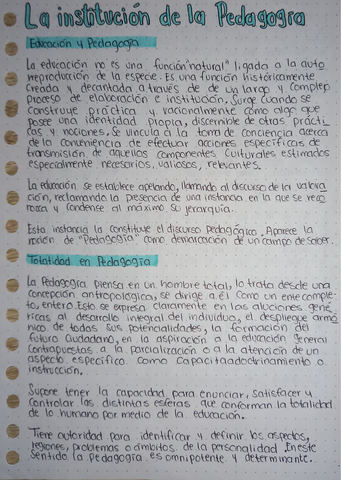 La institución de la Pedagogía
Educación y Pedagogía
La educación no es una función "natural" ligada a la auto
reproducción de la especie. Es una función históricamente
creada y decantada a través de de un largo y complejo
proceso de elaboración e institución. Surge cuando se
construye práctica y racionalmente como algo que
posee una identidad propia, discernible de otras prácti
cas y nociones. Se vincula a la toma de conciencia acerca
de la conveniencia de efectuar acciones específicas de
transmisión de aquellos componentes culturales estimados
especialmente necesarios, valiosos, relevantes.
La educación se establece apelando, llamando al discurso de la valora
ción, reclamando la presencia de una instancia en la que se reco
nozca y condense al máximo su jerarquía.
Esta instancia la constituye el discurso Pedagógico. Aparece la
noción de "Pedagogía" como demarcación de un campo de saber.
Totalidad en Pedagogía
La Pedagogía piensa en un hombre total, lo trata desde una
concepción antropológica, se dirige a él como un ente comple-
to, entero. Esto se expresa claramente en las alusiones gené
ricas al desarrollo integral del individuo, el despliegue armó
nico de todas sus potencialidades, la formación del
futuro ciudadano, en la aspiración a la educación general
contrapuestas a la parcialización o a la atención de un
aspecto específico como capacitaadoctrinamiento o
instrucción.
Supone tener la capacidad para enunciar, satisfacer y
controlar las distintas esferas que conforman la totalidad
de lo humano por medio de la educación.
Tiene autoridad para identificar y definir los aspectos,
regiones, problemas o ámbitos de la personalidad. En este
sentido la Pedagogía es omnipotente y determinante.